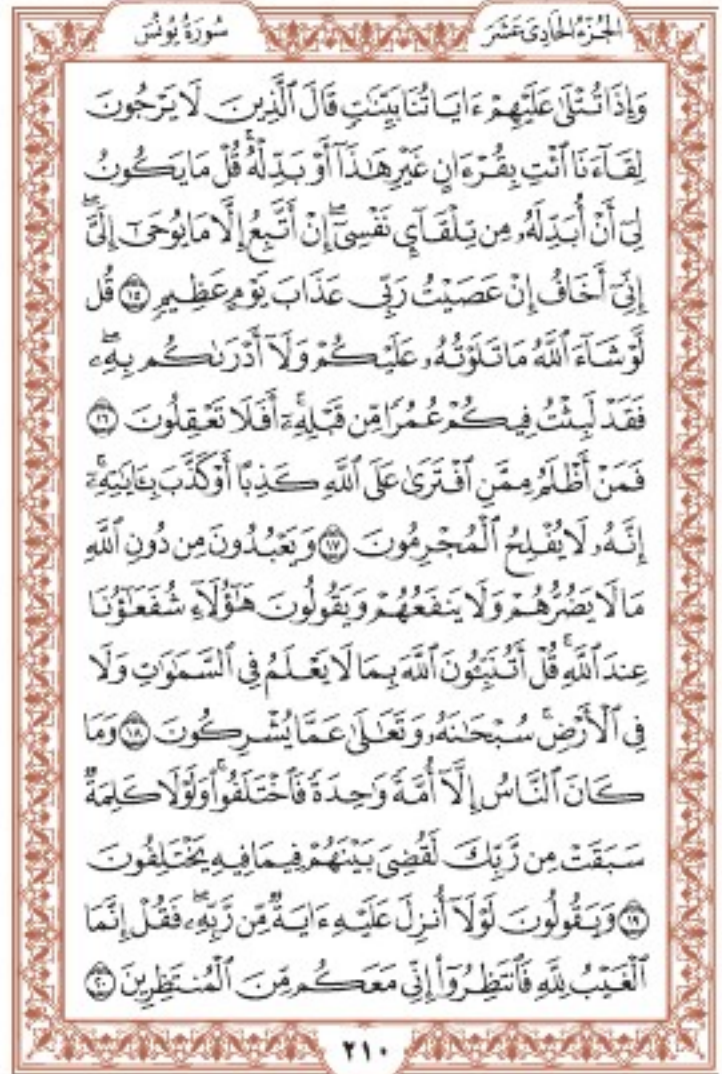 الجُزْءُ الحَادِي عَشَرَ
سُورَةُ يُونُسَ
وَإِذَا تُتْلَىٰ عَلَيْهِمْ ءَايَاتُنَا بَيِّنَٰتٍ قَالَ ٱلَّذِينَ لَا يَرْجُونَ
لِقَآءَنَا ٱئْتِ بِقُرْءَانٍ غَيْرِ هَٰذَآ أَوْ بَدِّلْهُ ۚ قُلْ مَا يَكُونُ
لِىٓ أَنْ أُبَدِّلَهُۥ مِن تِلْقَآىِٕ نَفْسِىٓ ۖ إِنْ أَتَّبِعُ إِلَّا مَا يُوحَىٰٓ إِلَىَّ ۖ
إِنِّىٓ أَخَافُ إِنْ عَصَيْتُ رَبِّى عَذَابَ يَوْمٍ عَظِيمٍ ١٥ قُل
لَّوْ شَآءَ ٱللَّهُ مَا تَلَوْتُهُۥ عَلَيْكُمْ وَلَآ أَدْرَىٰكُم بِهِۦ ۖ
فَقَدْ لَبِثْتُ فِيكُمْ عُمُرًا مِّن قَبْلِهِۦٓ ۚ أَفَلَا تَعْقِلُونَ ١٦
فَمَنْ أَظْلَمُ مِمَّنِ ٱفْتَرَىٰ عَلَى ٱللَّهِ كَذِبًا أَوْ كَذَّبَ بِـَٔايَٰتِهِۦٓ ۚ
إِنَّهُۥ لَا يُفْلِحُ ٱلْمُجْرِمُونَ ١٧ وَيَعْبُدُونَ مِن دُونِ ٱللَّهِ
مَا لَا يَضُرُّهُمْ وَلَا يَنفَعُهُمْ وَيَقُولُونَ هَٰٓؤُلَآءِ شُفَعَٰٓؤُنَا
عِندَ ٱللَّهِ ۚ قُلْ أَتُنَبِّـُٔونَ ٱللَّهَ بِمَا لَا يَعْلَمُ فِى ٱلسَّمَٰوَٰتِ وَلَا
فِى ٱلْأَرْضِ ۚ سُبْحَٰنَهُۥ وَتَعَٰلَىٰ عَمَّا يُشْرِكُونَ ١٨ وَمَا
كَانَ ٱلنَّاسُ إِلَّآ أُمَّةً وَٰحِدَةً فَٱخْتَلَفُوا۟ ۚ وَلَوْلَا كَلِمَةٌ
سَبَقَتْ مِن رَّبِّكَ لَقُضِىَ بَيْنَهُمْ فِيمَا فِيهِ يَخْتَلِفُونَ
١٩ وَيَقُولُونَ لَوْلَآ أُنزِلَ عَلَيْهِ ءَايَةٌ مِّن رَّبِّهِۦ ۖ فَقُلْ إِنَّمَا
ٱلْغَيْبُ لِلَّهِ فَٱنتَظِرُوٓا۟ إِنِّى مَعَكُم مِّنَ ٱلْمُنتَظِرِينَ ٢٠
٢١٠